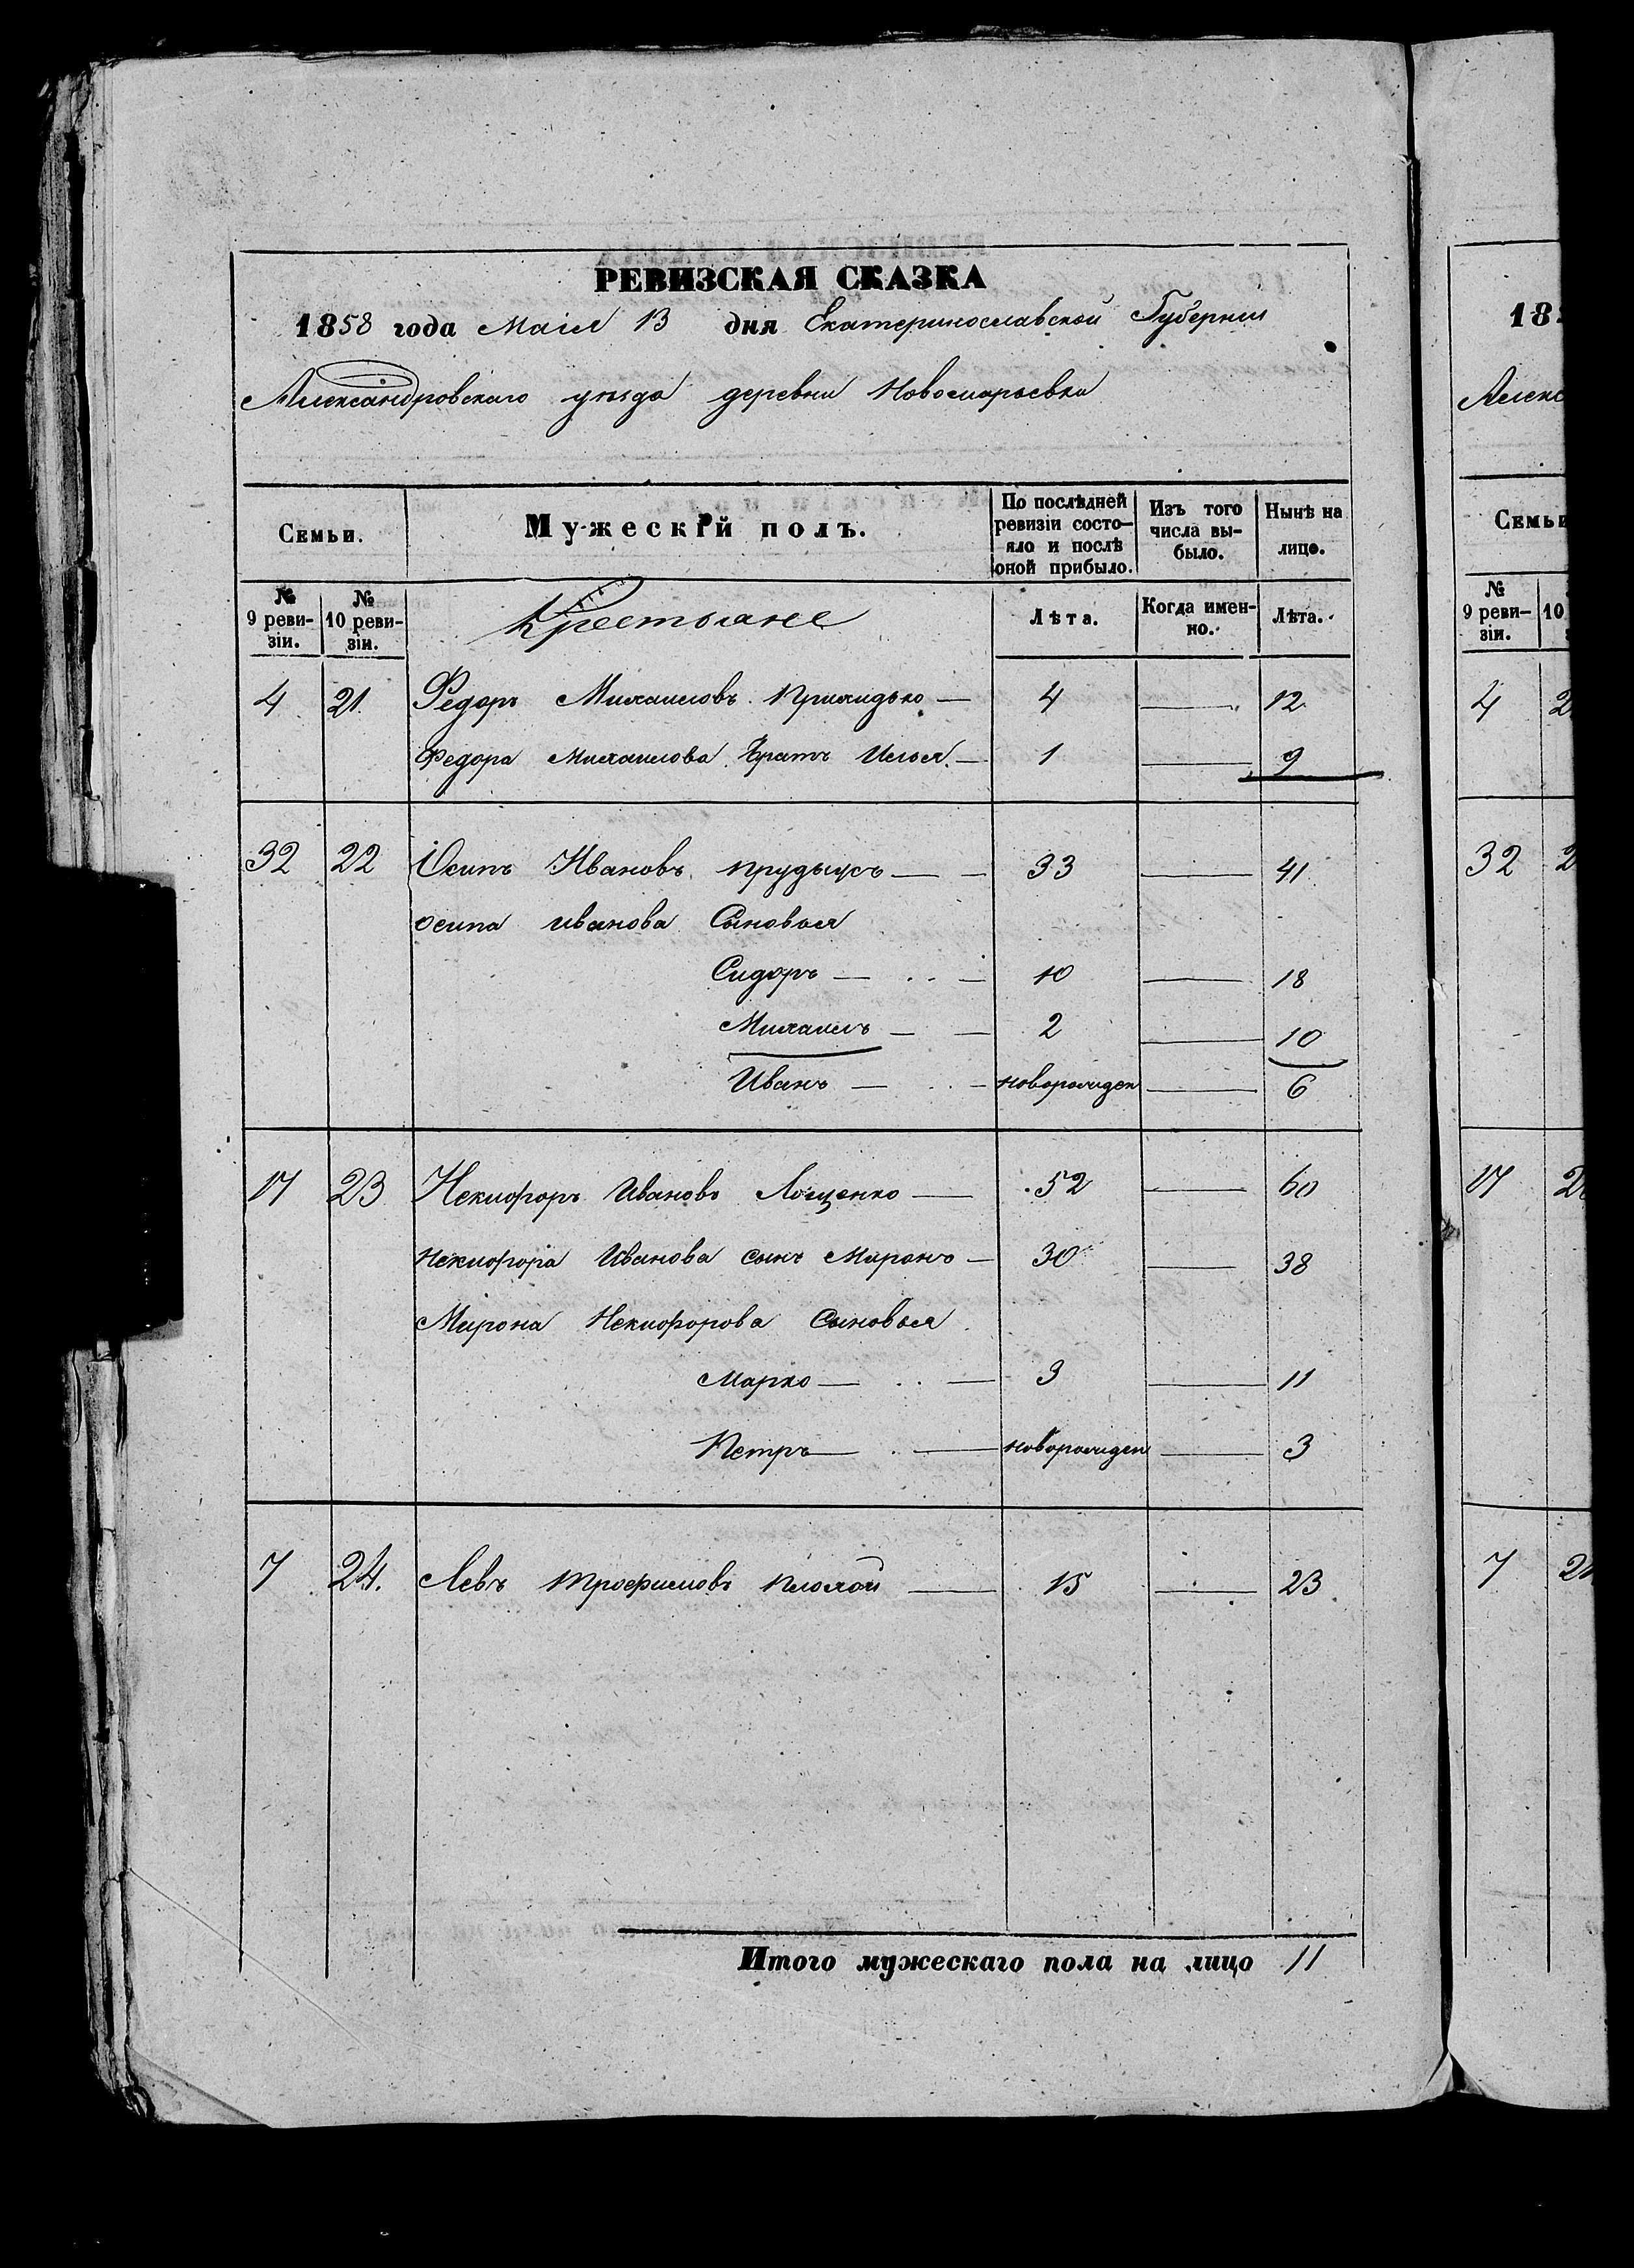 РЕВИЗСКАЯ СКАЗКА
1858 года Маія 13 дня Екатеринославской Губерніи
Александровскаго уѣзда деревни Новомарьевки
Семьи.
Мужескій полъ.
По послѣдней ревизіи состо-
яло и послѣ
оной прибыло.
Изъ того
числа вы-
было.
Нынѣ на
лицо.
№
9 реви-
зіи.
№
10 реви-
зіи.
Крестьяне
Лѣта.
Когда имен-
но.
Лѣта.
4 21 Федоръ Михаиловъ — 4 — 12
Федора Михаилова братъ Илья — 1 — 9
32 22 Іосипъ Ивановъ Прудыусъ — 33 — 41
осипа иванова Сыновья
Сидоръ — 10 — 18
Михаилъ — 2 — 10
Иванъ — новорожден — 6
17 23 Некифоръ Ивановъ Лощенко — 52 — 60
Некифора Иванова сынъ Миронъ — 30 — 38
Мирона Некифорова Сыновья
Марко — 3 — 11
Петръ — новорожден — 3
7 24. Левъ Трофимовъ Плохой — 15 — 23
Итого мужескаго пола на лицо 11
18
Алекс
Семьи
№
9 реви-
зіи.
10
4 2
32 2
17 2
7 2